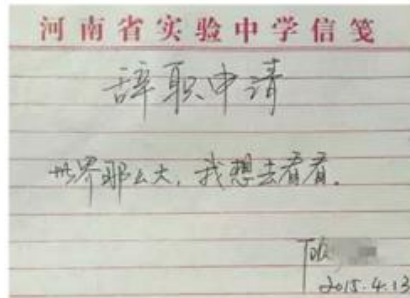 河南省实验中学信笺
辞职申请
世界那么大，我想去看看。
2015.4.13